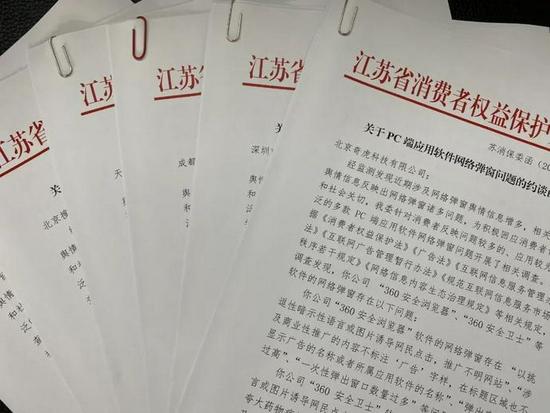 江苏省
北京橡
舆情
江苏
天
江苏
成都
江苏
深圳
江苏省消费者权益保护
苏消保委函（20
关于 PC 端应用软件网络弹窗问题的约谈
北京奇虎科技有限公司：
经监测发现近期涉及网络弹窗舆情信息增多，相关
舆情信息反映出网络弹窗诸多问题，为积极回应消费者
和社会关切，我委针对消费者反映问题较多的、应用较
泛的多款 PC 端应用软件网络弹窗问题开展了相关调查。
据《消费者权益保护法》《广告法》《互联网信息服务管理
法》《互联网广告管理暂行办法》《规范互联网信息服务市场
秩序若干规定》《网络信息内容生态治理规定》等相关规定，
调查发现，你公司“360 安全浏览器”、“360 安全卫士”等
软件的网络弹窗存在以下问题：
你公司“360 安全浏览器”软件的网络弹窗存在“以挑
逗性暗示性语言或图片诱导网民点击，推广不明网站”、“涉
及商业性推广的内容不标注‘广告’字样，在标题区域也不
显示广告的名称或者所属应用软件的名称”、“弹出
过高”、“一次性弹出窗口数量过多”等问
你公司“360 安全卫士”
言或图片诱导网民点
夸大药物